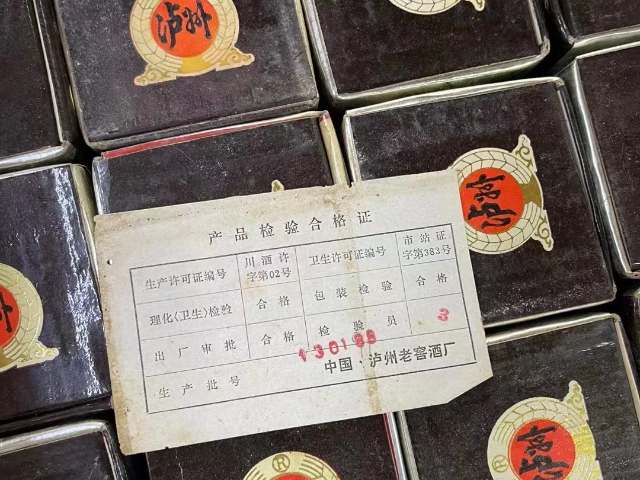 泸州
产品检验合格证
生产许可证编号 川酒许字第02号 卫生许可证编号 市站证字第383号
理化(卫生)检验 合格 包装检验 合格
出厂审批 合格 检验员 3
生产批号
中国·泸州老窖酒厂
®